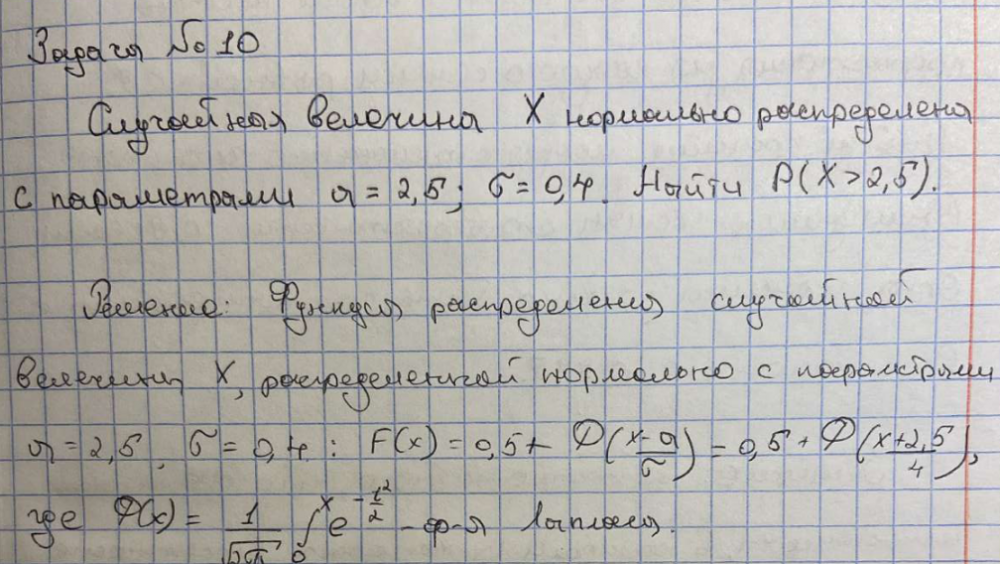 Задача № 10
Случайная величина X нормально распределена
с параметрами a = 2,5; σ = 0,4. Найти P(X > 2,5).
Решение: Функция распределения случайной
величины X, распределенной нормально с параметрами
a = 2,5, σ = 0,4 : F(x) = 0,5 + Φ((x-a)/σ) = 0,5 + Φ((x+2,5)/4),
где Φ(x) = 1/√2π ∫₀ˣ e^(-t²/2) - ф-я Лапласа.